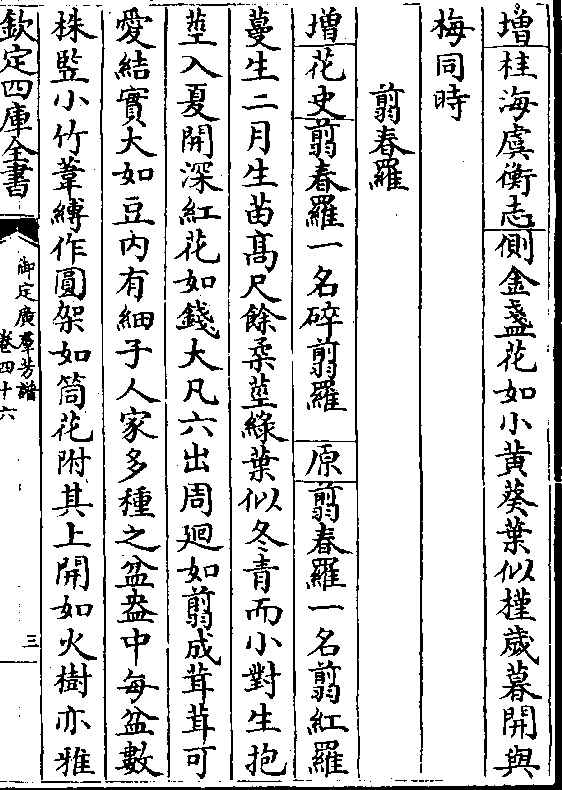 增桂海虞衡志側金盞花如小黃葵葉似槿歲暮開與
梅同時
翦春羅
增花史翦春羅一名碎翦羅 原翦春羅一名翦紅羅
蔓生二月生苗髙尺餘柔莖綠葉似冬青而小對生抱
莖入夏開深紅花如錢大凡六出周廻如翦成茸茸可
愛結實大如豆内有細子人家多種之盆盎中每盆數
株竪小竹葦縛作圓架如筒花附其上開如火樹亦雅
欽定四庫全書
御定廣羣芳譜
卷四十六
三